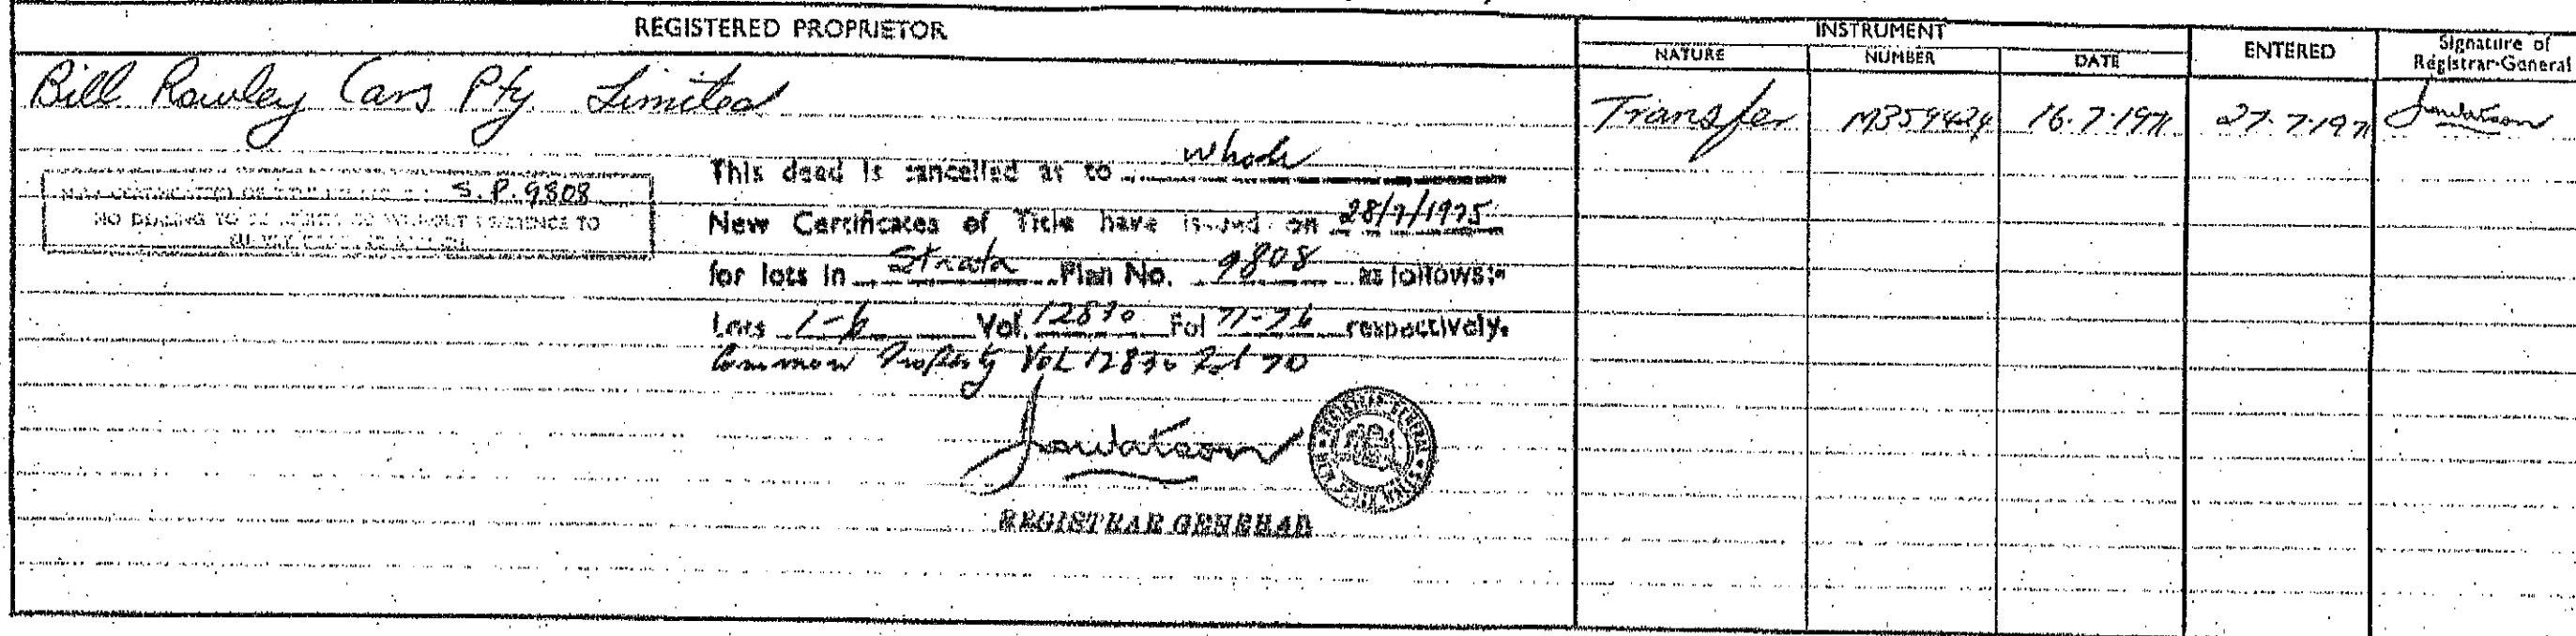 REGISTERED PROPRIETOR
INSTRUMENT
NATURE
NUMBER
DATE
ENTERED
Signature of
Registrar-General
Bill Rowley Cars Pty. Limited
Transfer M359424 16.7.1971 27.7.1971 Jawatson
This deed is cancelled as to whole
S.P.9808
NO DEALING TO
New Certificates of Title have issued on 28/7/1975
for lots in Strata Plan No. 9808 as follows:-
Lots 1-6 Vol. 12830 Fol 71-76 respectively.
Common Property Vol 12830 Fol 70
Jawatson
REGISTRAR GENERAL